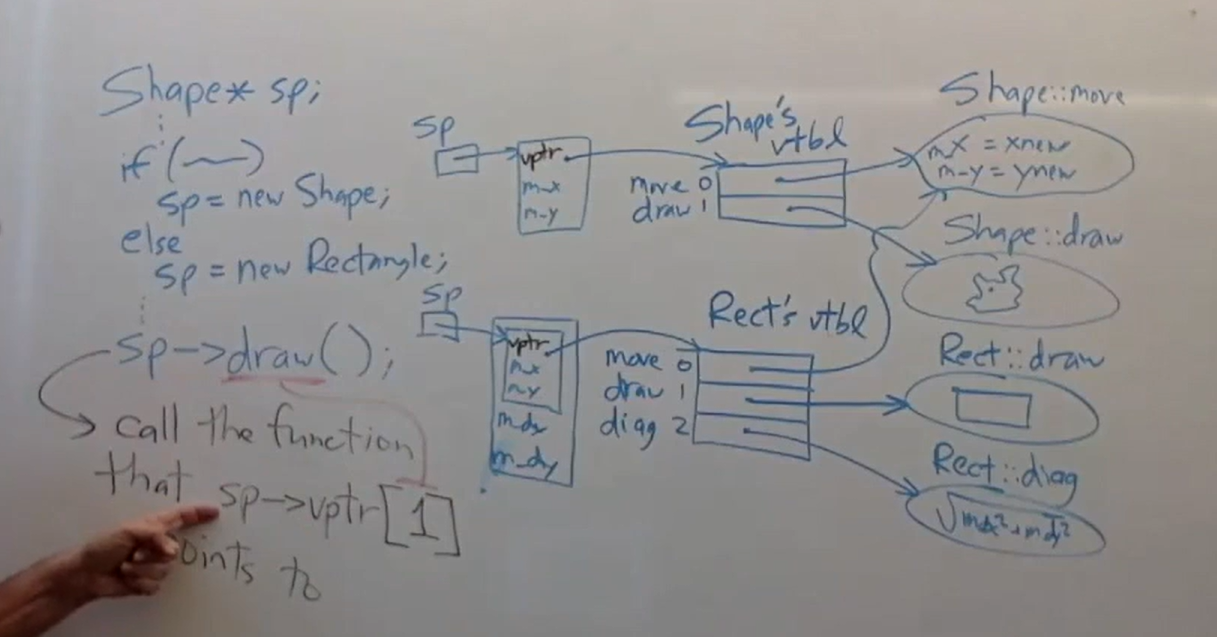 Shape* sp;
if (
sp = new Shape;
else
sp = new Rectangle;
sp->draw();
call the function
that sp->vptr[1]
oints to
sp
vptr
m_x
m_y
Shape's
vtbl
move 0
draw 1
Shape::move
m_x = xnew
m_y = ynew
Shape::draw
sp
vptr
m_x
m_y
m_dx
m_dy
Rect's vtbl
move 0
draw 1
diag 2
Rect::draw
Rect::diag
√mdx²+mdy²